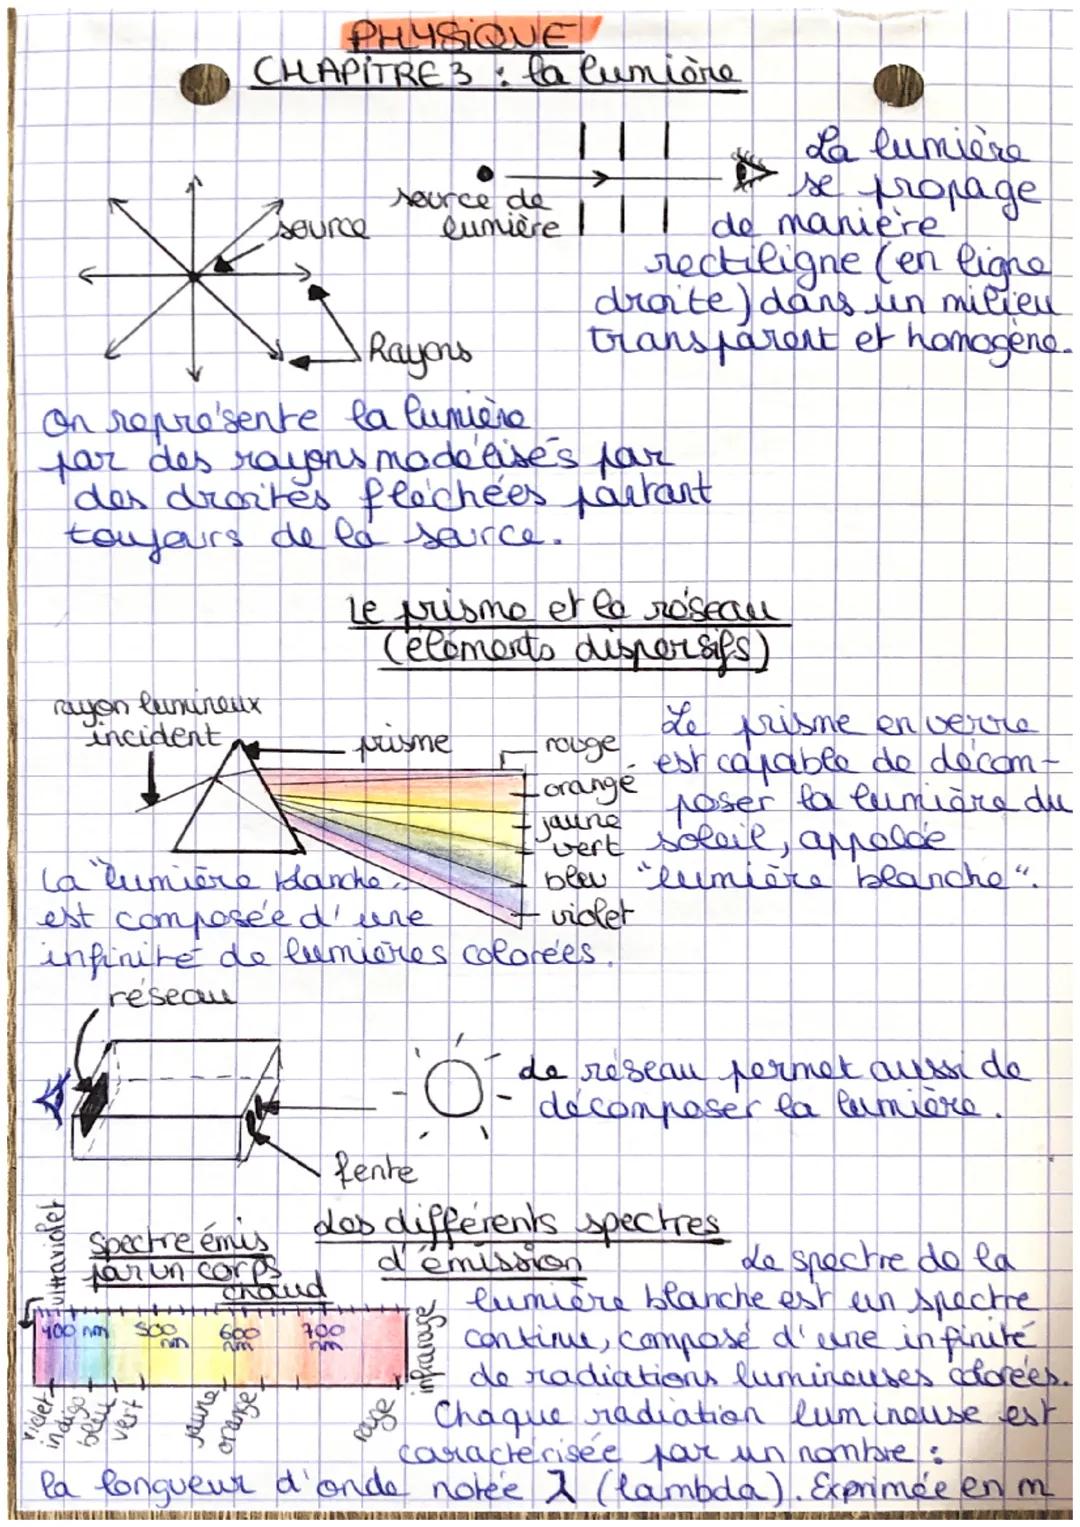 PHYSIQUE
CHAPITRE 3 : la lumière
source
Rayons
source de
lumière
La lumière
se propage
de manière
rectiligne (en ligne
droite) dans un milieu
transparent et homogène.
On représente la lumière
par des rayons modélisés par
des droites fléchées partant
toujours de la source.
Le prisme et le réseau
(éléments dispersifs)
rayon lumineux
incident
prisme
rouge
orangé
jaune
vert
bleu
violet
Le prisme en verre
est capable de décom-
poser la lumière du
soleil, appelée
"lumière blanche".
La "lumière blanche"
est composée d'une
infinité de lumières colorées.
réseau
fente
Le réseau permet aussi de
décomposer la lumière.
Les différents spectres
d'émission
spectre émis
par un corps
chaud
ultraviolet
400 nm 500 nm 600 nm 700 nm
infrarouge
violet
indigo
bleu
vert
jaune
orange
rouge
Le spectre de la
lumière blanche est un spectre
continu, composé d'une infinité
de radiations lumineuses colorées.
Chaque radiation lumineuse est
caractérisée par un nombre :
la longueur d'onde notée λ (lambda). Exprimée en m